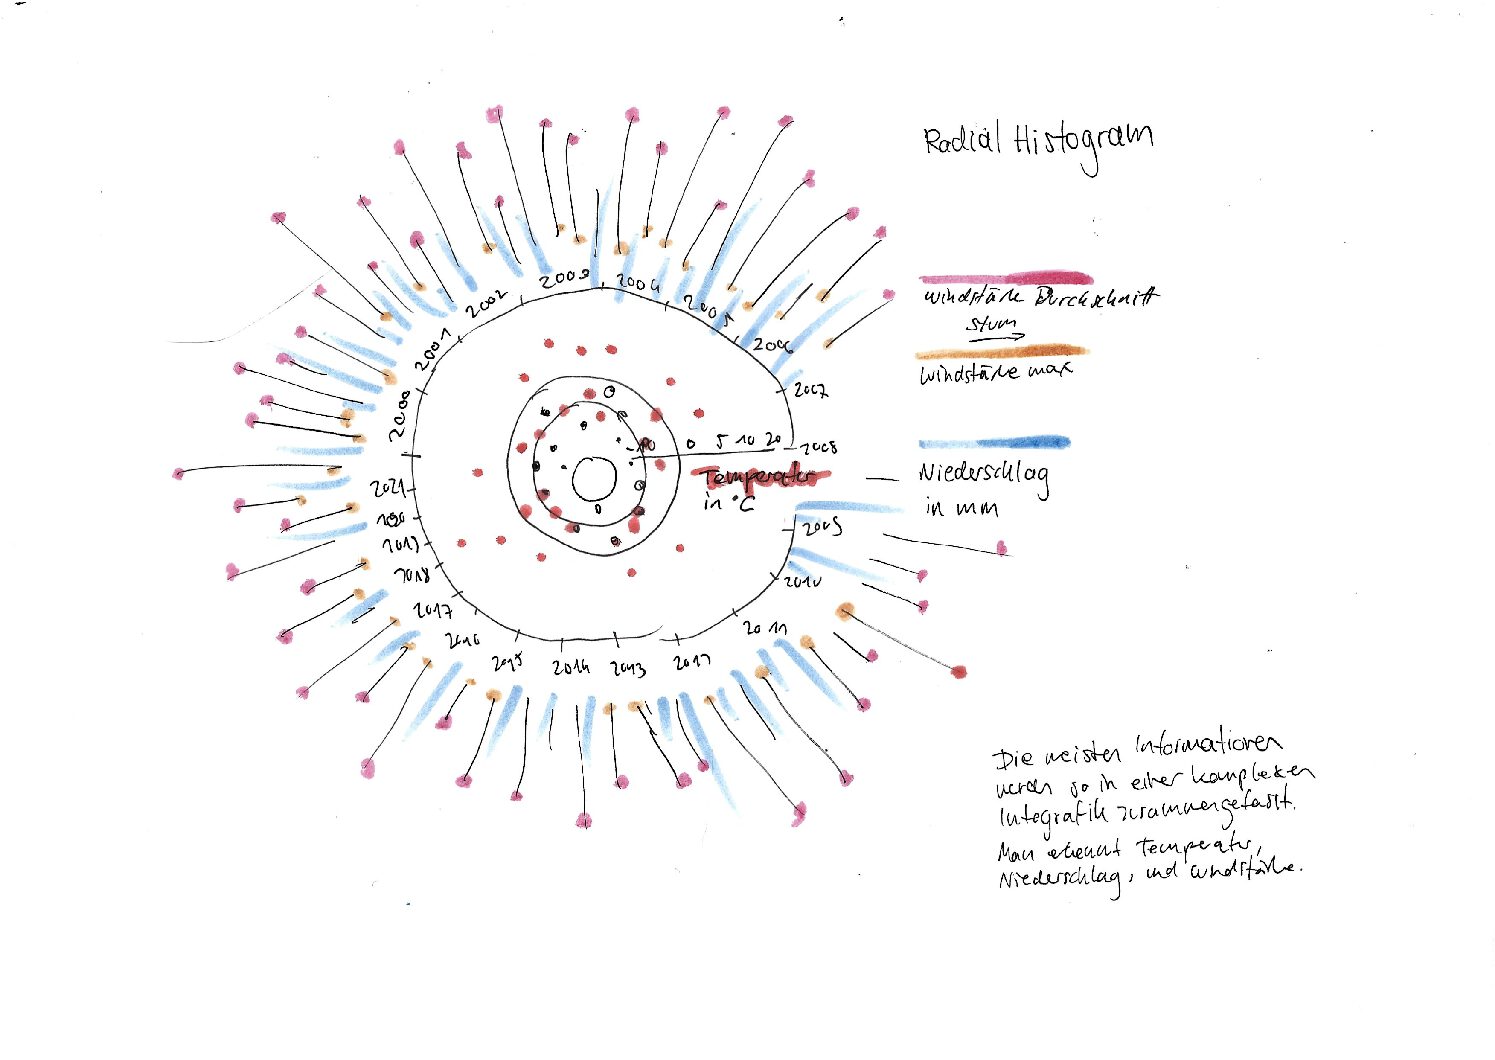 Radial Histogram
Windstärke Durchschnitt
Sturm
Windstärke max
Niederschlag
in mm
2003
2004
2005
2006
2007
2008
2009
2010
2011
2012
2013
2014
2015
2016
2017
2018
2019
2020
2021
2000
2001
2002
-10 0 5 10 20
Temperatur
in °C
Die meisten Informationen
werden so in einer komplexen
Infografik zusammengefasst.
Man erkennt Temperatur,
Niederschlag, und Windstärke.